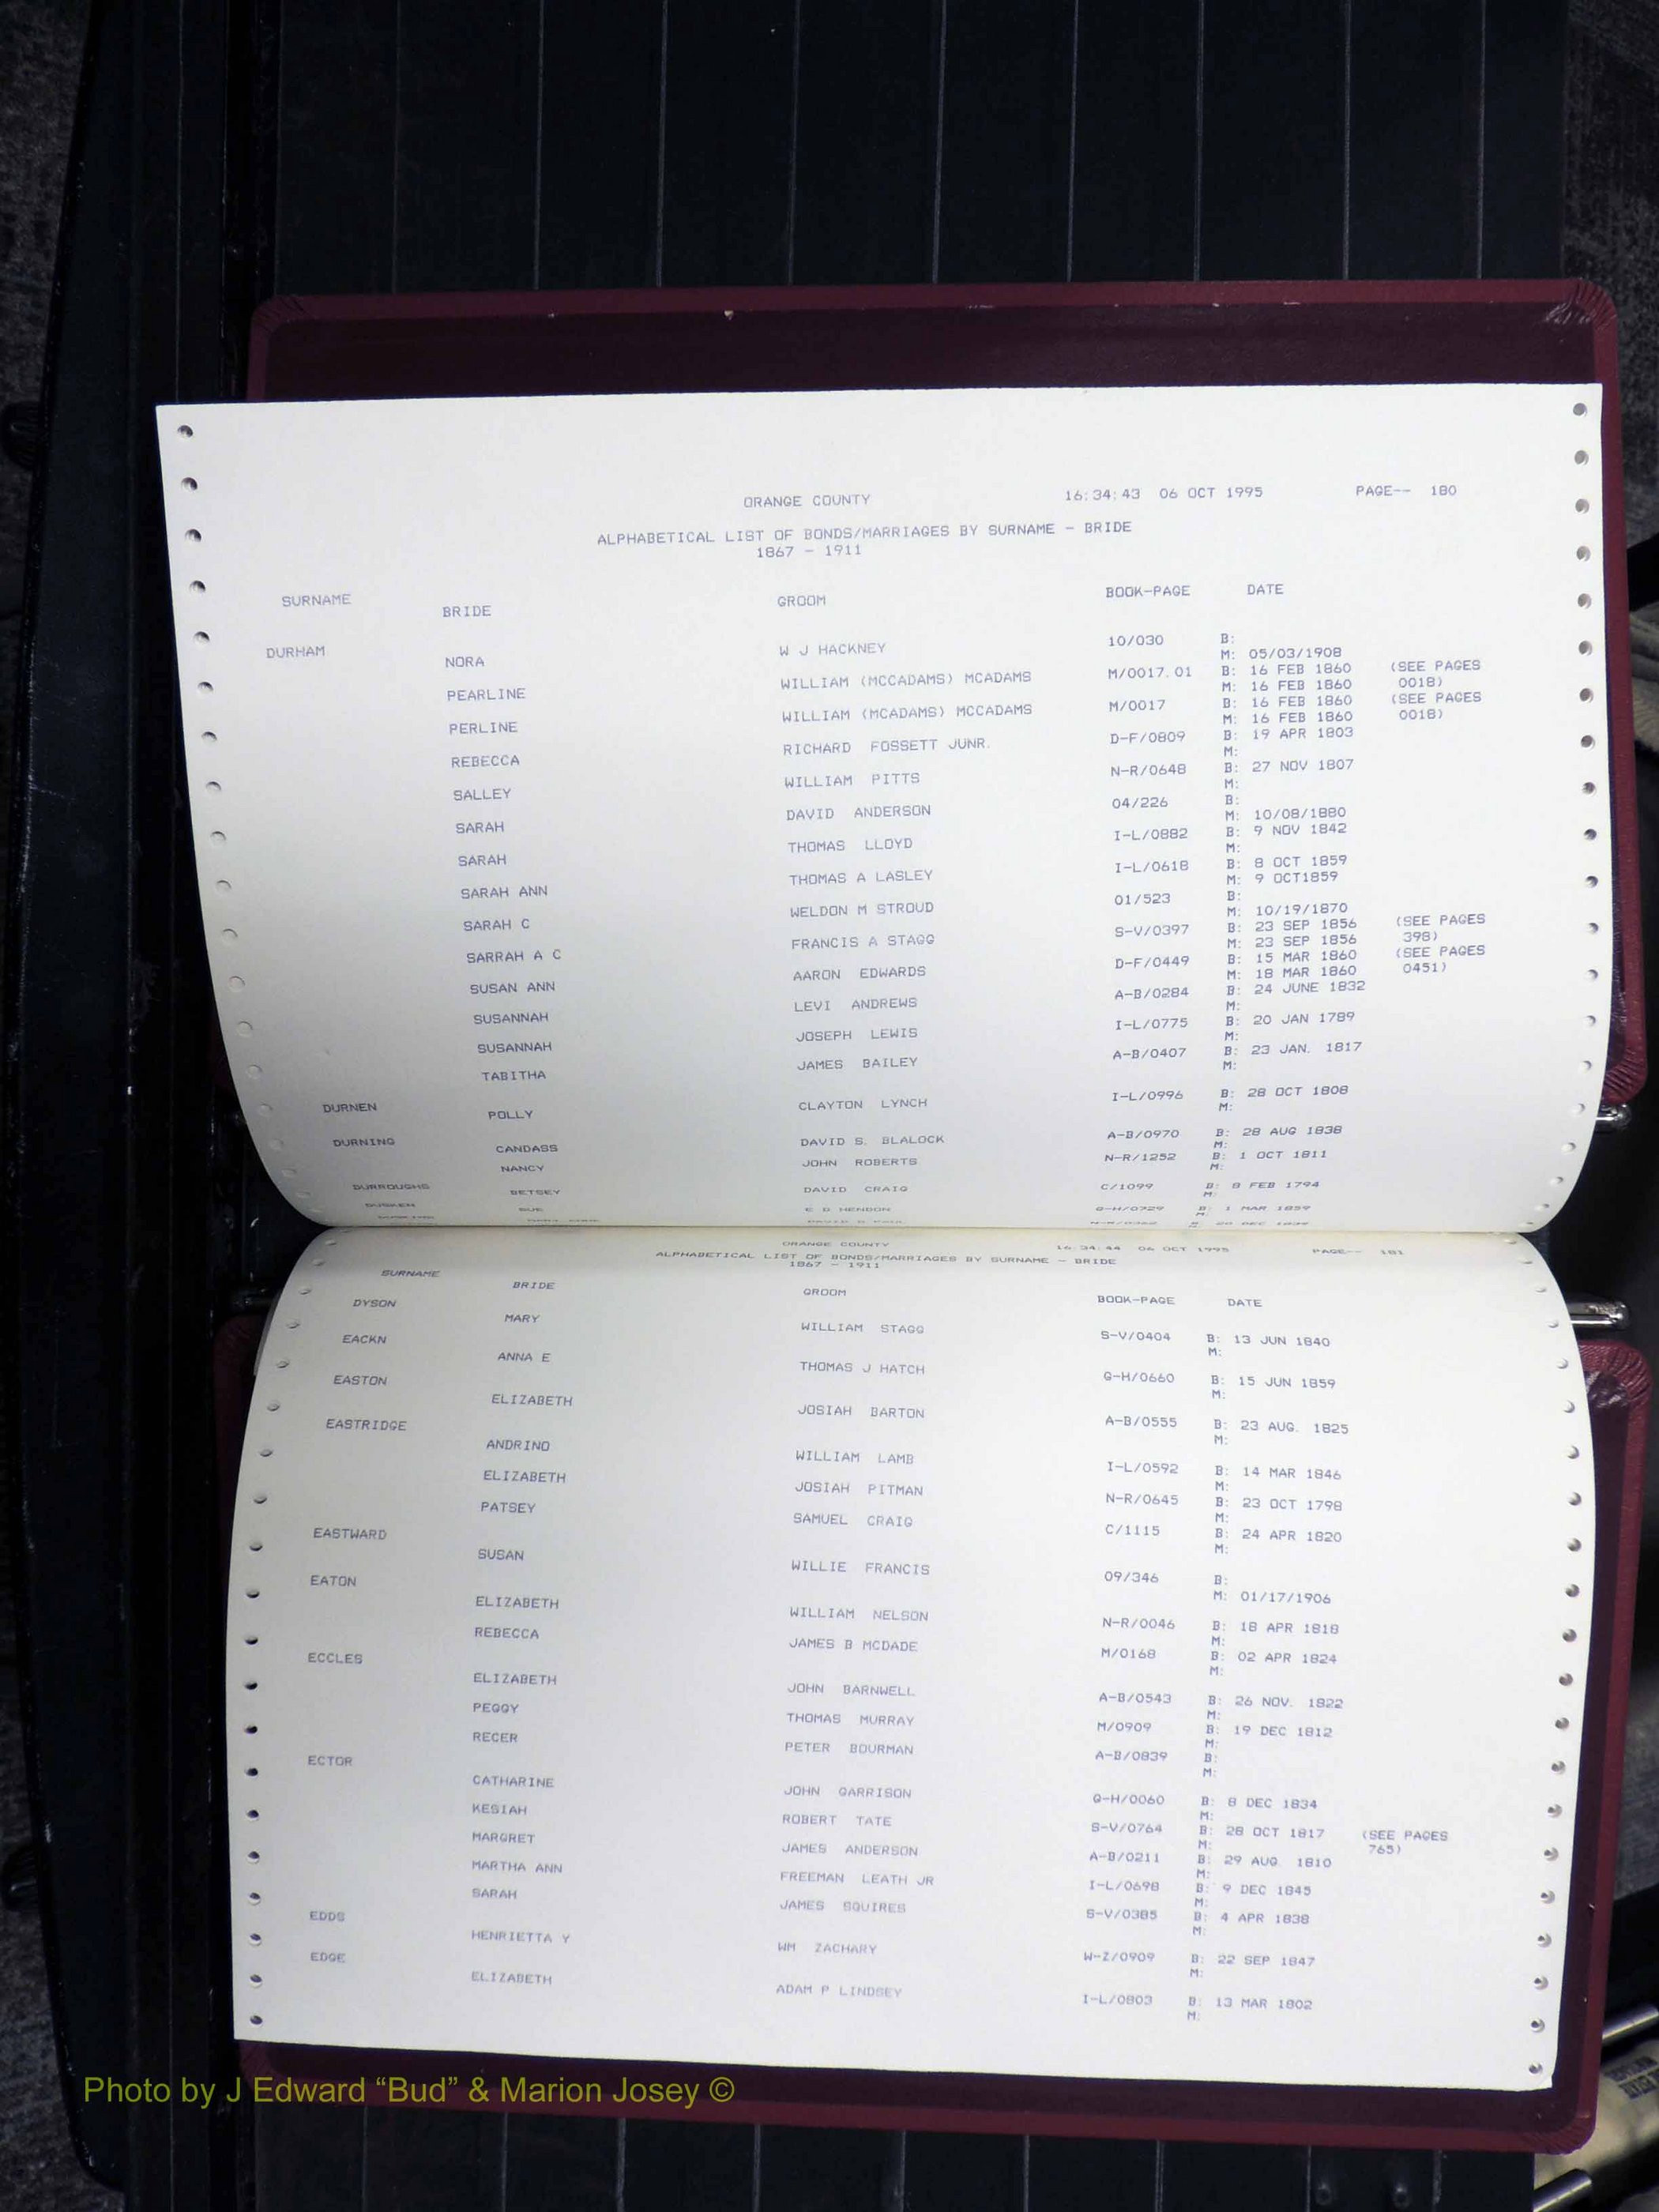 ORANGE COUNTY 16:34:43 06 OCT 1995 PAGE-- 180
ALPHABETICAL LIST OF BONDS/MARRIAGES BY SURNAME - BRIDE
1867 - 1911
SURNAME BRIDE GROOM BOOK-PAGE DATE
DURHAM NORA W J HACKNEY 10/030 B:
M: 05/03/1908
PEARLINE WILLIAM (MCCADAMS) MCADAMS M/0017.01 B: 16 FEB 1860 (SEE PAGES
M: 16 FEB 1860 0018)
PERLINE WILLIAM (MCADAMS) MCCADAMS M/0017 B: 16 FEB 1860 (SEE PAGES
M: 16 FEB 1860 0018)
REBECCA RICHARD FOSSETT JUNR. D-F/0809 B: 19 APR 1803
M:
SALLEY WILLIAM PITTS N-R/0648 B: 27 NOV 1807
M:
SARAH DAVID ANDERSON 04/226 B:
M: 10/08/1880
SARAH THOMAS LLOYD I-L/0882 B: 9 NOV 1842
M:
SARAH ANN THOMAS A LASLEY I-L/0618 B: 8 OCT 1859
M: 9 OCT1859
SARAH C WELDON M STROUD 01/523 B:
M: 10/19/1870
SARRAH A C FRANCIS A STAGG S-V/0397 B: 23 SEP 1856 (SEE PAGES
M: 23 SEP 1856 398)
SUSAN ANN AARON EDWARDS D-F/0449 B: 15 MAR 1860 (SEE PAGES
M: 18 MAR 1860 0451)
SUSANNAH LEVI ANDREWS A-B/0284 B: 24 JUNE 1832
M:
SUSANNAH JOSEPH LEWIS I-L/0775 B: 20 JAN 1789
M:
TABITHA JAMES BAILEY A-B/0407 B: 23 JAN. 1817
M:
DURNEN POLLY CLAYTON LYNCH I-L/0996 B: 28 OCT 1808
M:
DURNING CANDASS DAVID S. BLALOCK A-B/0970 B: 28 AUG 1838
M:
NANCY JOHN ROBERTS N-R/1252 B: 1 OCT 1811
M:
DURROUGHS BETSEY DAVID CRAIG C/1099 B: 8 FEB 1794
M:
SUE E D HENDON G-H/0729 B: 1 MAR 1859
M:
ORANGE COUNTY 16:34:44 06 OCT 1995 PAGE-- 181
ALPHABETICAL LIST OF BONDS/MARRIAGES BY SURNAME - BRIDE
1867 - 1911
SURNAME BRIDE GROOM BOOK-PAGE DATE
DYSON MARY WILLIAM STAGG S-V/0404 B: 13 JUN 1840
M:
EACKN ANNA E THOMAS J HATCH G-H/0660 B: 15 JUN 1859
M:
EASTON ELIZABETH JOSIAH BARTON A-B/0555 B: 23 AUG. 1825
M:
EASTRIDGE ANDRINO WILLIAM LAMB I-L/0592 B: 14 MAR 1846
M:
ELIZABETH JOSIAH PITMAN N-R/0645 B: 23 OCT 1798
M:
PATSEY SAMUEL CRAIG C/1115 B: 24 APR 1820
M:
EASTWARD SUSAN WILLIE FRANCIS 09/346 B:
M: 01/17/1906
EATON ELIZABETH WILLIAM NELSON N-R/0046 B: 18 APR 1818
M:
REBECCA JAMES B MCDADE M/0168 B: 02 APR 1824
M:
ECCLES ELIZABETH JOHN BARNWELL A-B/0543 B: 26 NOV. 1822
M:
PEGGY THOMAS MURRAY M/0909 B: 19 DEC 1812
M:
RECER PETER BOURMAN A-B/0839 B:
M:
ECTOR CATHARINE JOHN GARRISON G-H/0060 B: 8 DEC 1834
M:
KESIAH ROBERT TATE S-V/0764 B: 28 OCT 1817 (SEE PAGES
M: 765)
MARGRET JAMES ANDERSON A-B/0211 B: 29 AUG. 1810
M:
MARTHA ANN FREEMAN LEATH JR I-L/0698 B: 9 DEC 1845
M:
SARAH JAMES SQUIRES S-V/0385 B: 4 APR 1838
M:
EDDS HENRIETTA Y WM ZACHARY W-Z/0909 B: 22 SEP 1847
M:
EDGE ELIZABETH ADAM P LINDSEY I-L/0803 B: 13 MAR 1802
M:
Photo by J Edward “Bud” & Marion Josey ©